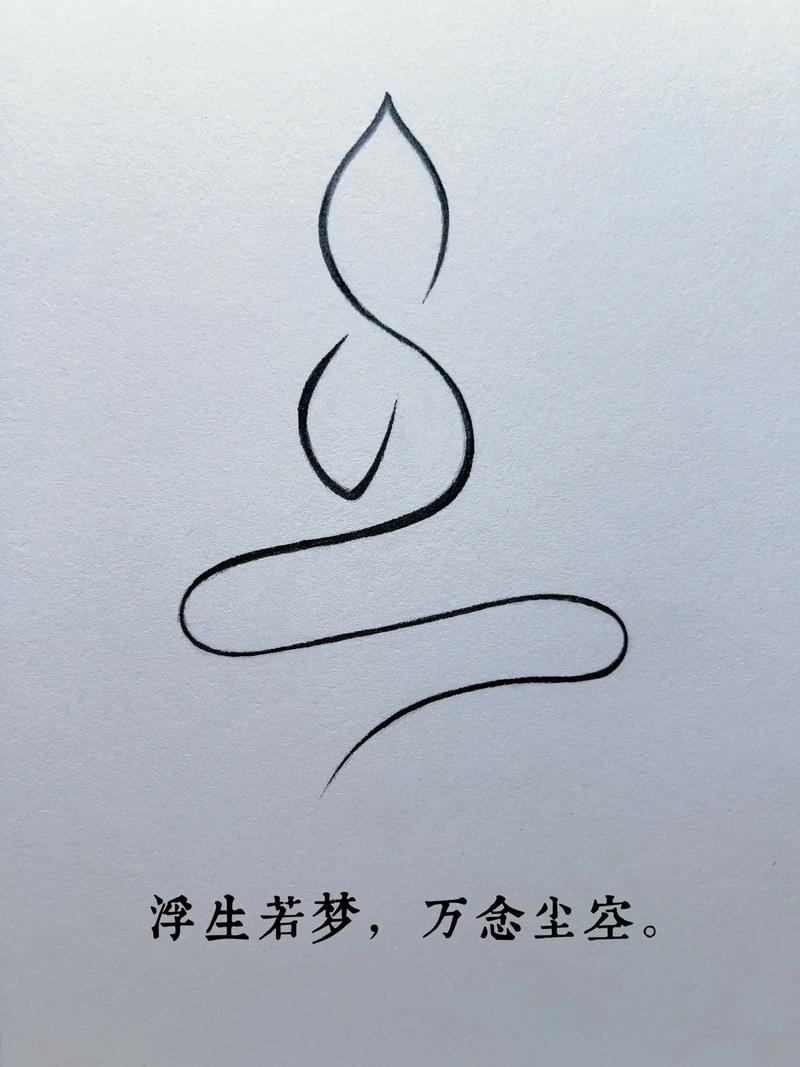 浮生若梦，万念尘空。